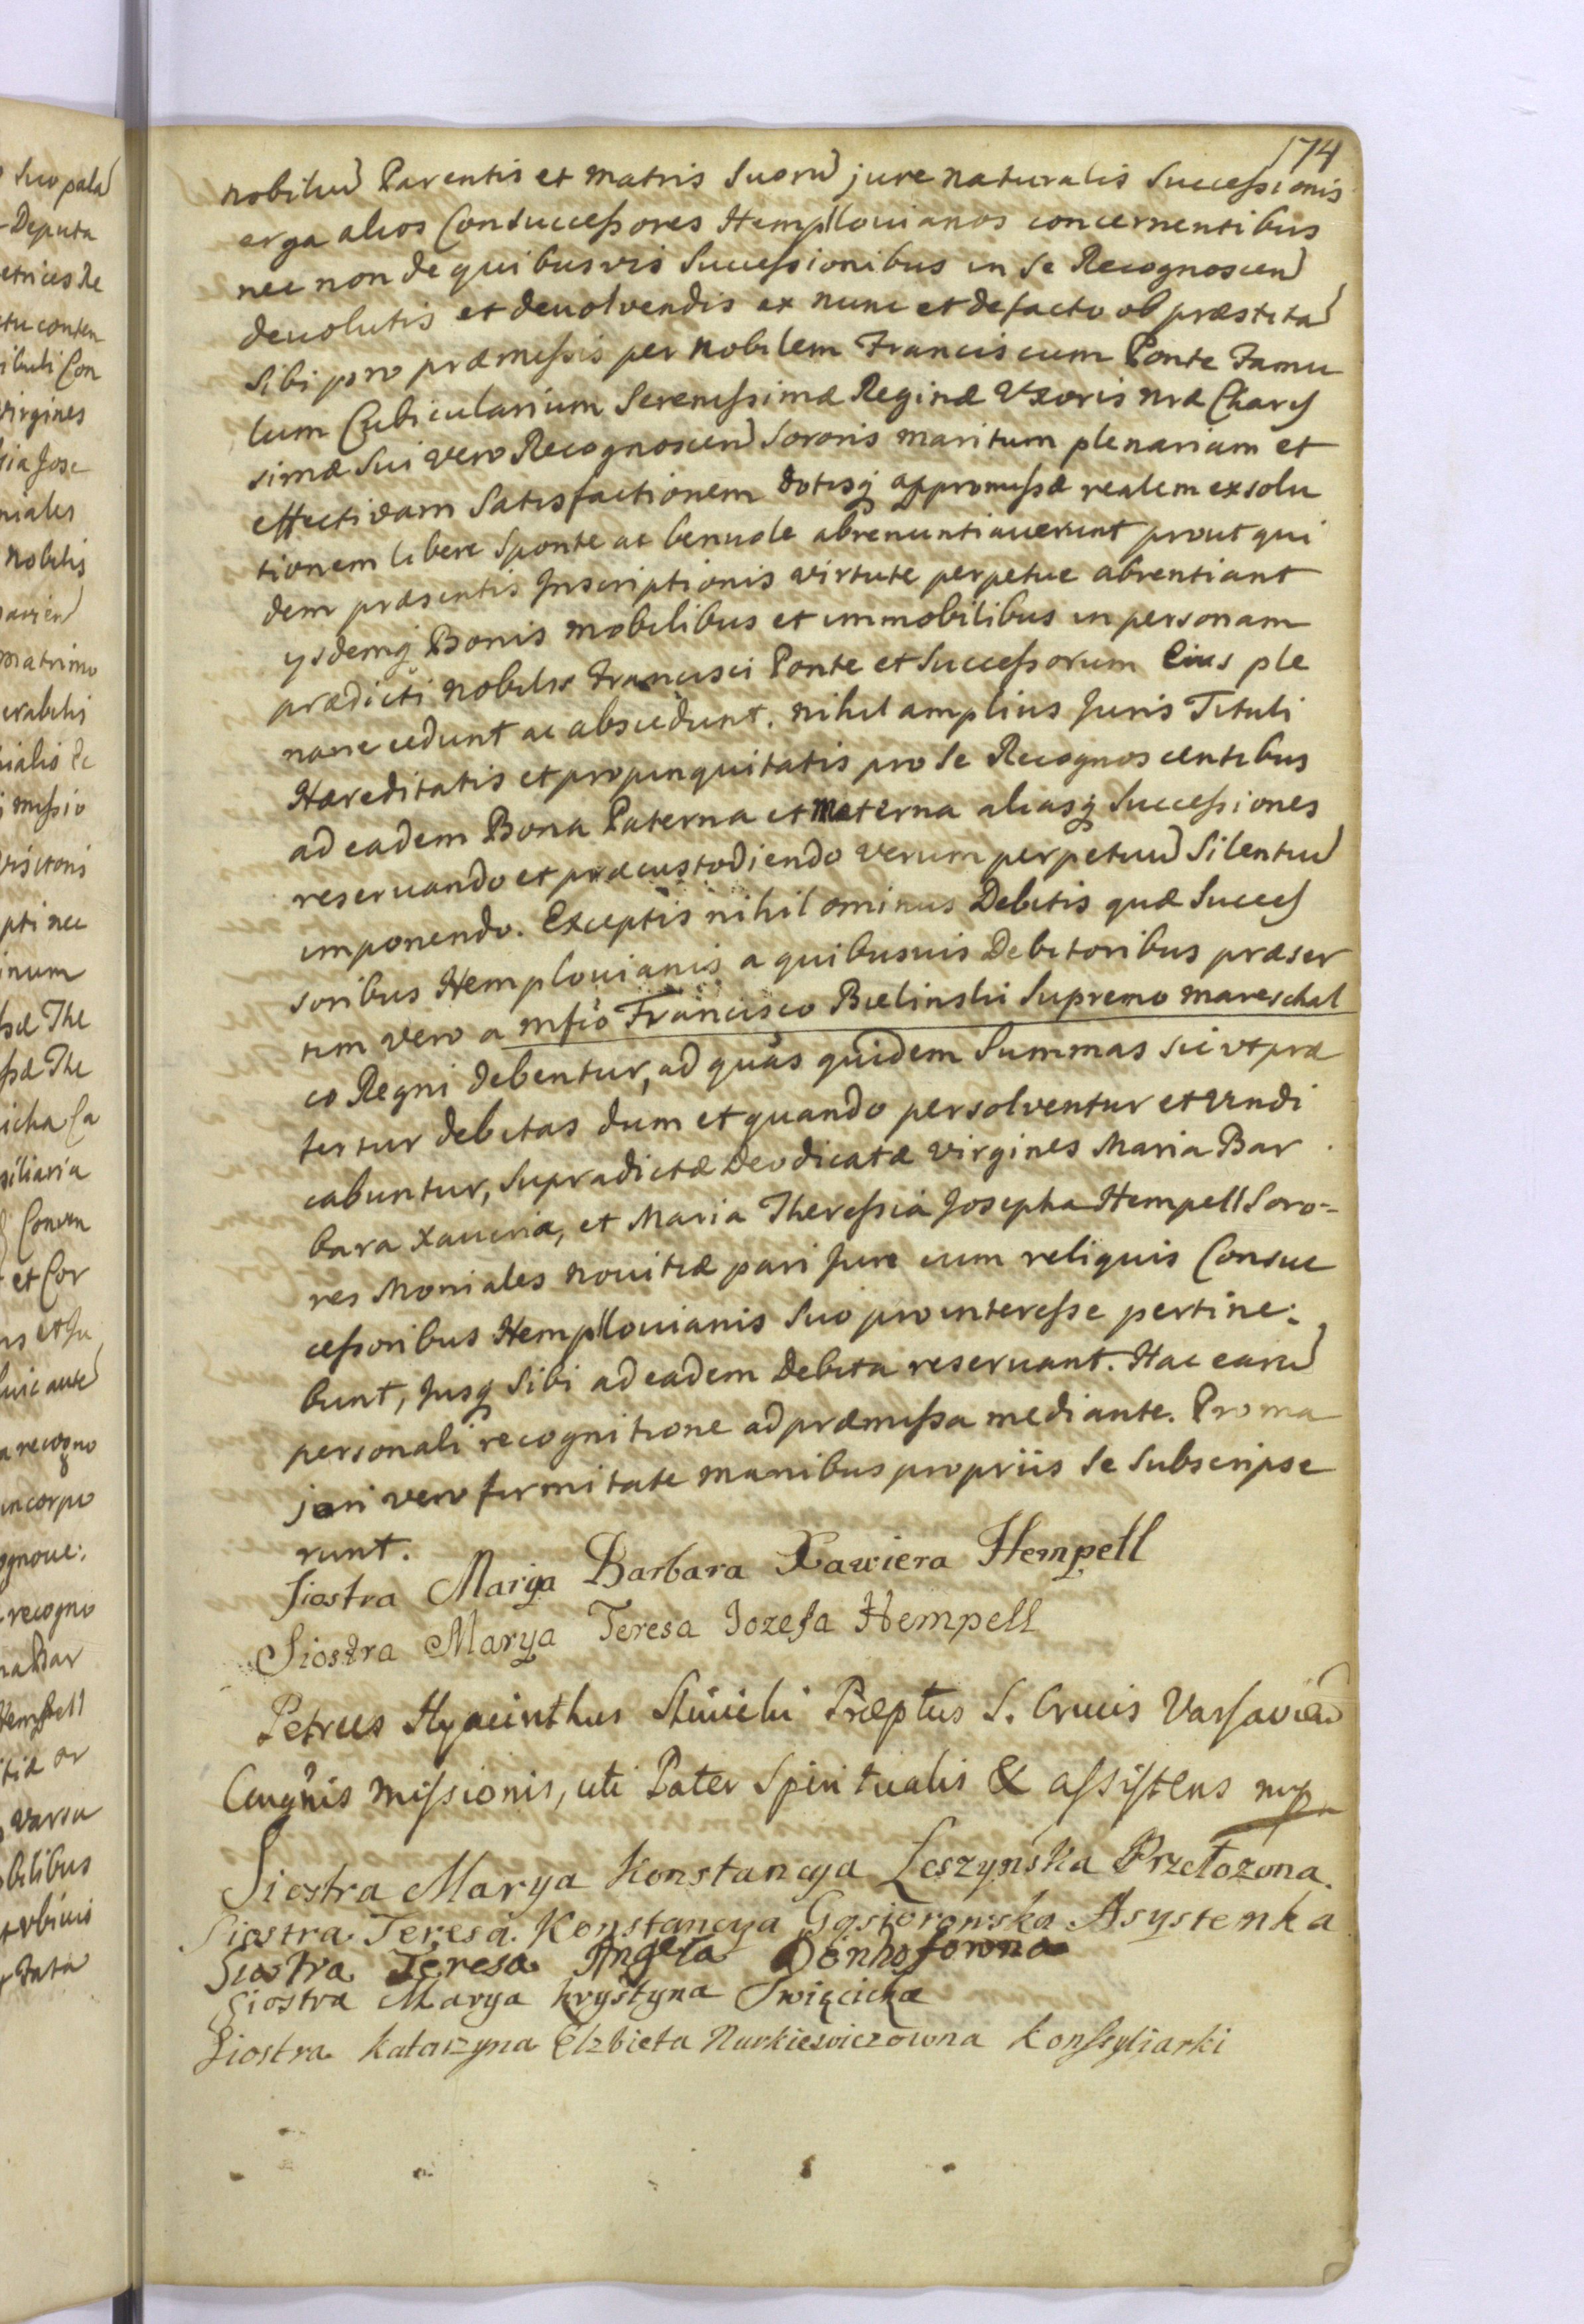 174
nobiliu Parentis et Matris Suoru jure naturalis Successionis
erga alios Consuccessores Hempllouianos concernentibus
nec non de quibusvis Successionibus in se Recognoscen
deuolutis et deuolvendis ex nunc et de facto ob præstita
Sibi pro præmissis per Nobilem Franciscum Ponte Famu
lum Cubicularium Serenissimæ Reginæ Vxoris nræ Charis
simæ Sui vero Recognoscen Sororis maritum plenariam et
effectivam Satisfactionem dotisq appromissæ realem exsolu
tionem libere Sponte ac beniuole abrenuntiauerunt prout qui
dem præsentis Inscriptionis virtute perpetue abrentiant
ysdemq Bonis Mobilibus et immobilibus in personam
prædicti Nobilis Francisci Ponte et Successorum Eius ple
narie cedunt ac abscedunt. Nihil amplius Juris Tituli
Hæreditatis et propinquitatis pro se Recognoscentibus
ad eadem Bona Paterna et Materna aliasq Successiones
reseruando et præcustodiendo verum perpetuu Silentiu
imponendo. Exceptis nihil ominus Debitis quæ Succes
soribus Hemplouianis a quibusuis Debitoribus præser
tim vero a Mfico Francisco Bielinski Supremo Mareschal
co Regni debentur, ad quas quidem Summas sic vt præ
fertur debitas dum et quando persolventur et vindi
cabuntur, Supradictæ Deodicatæ Virgines Maria Bar
bara Xaueria, et Maria Theressia Josepha Hempell Soro-
res Moniales Nouitiæ pari Jure cum reliquis Consuc
cessoribus Hempllouianis Suo pro interesse pertine:
bunt, Jusq Sibi ad eadem Debita reseruant. Hac earu
personali recognitione ad præmissa mediante. Pro ma
jori vero firmitate manibus propriis se Subscripse
runt.
Siostra Marya Barbara Xawiera Hempell
Siostra Marya Teresa Jozefa Hempell
Petrus Hyacinthus Præptus S. Crucis Varsavien
Congnis missionis, uti Pater Spiritualis & assistens mp
Siostra Marya Konstancya Leszynska Przełożona.
Siostra Teresa Konstancya Gąsiorowska Asystenka
Siostra Teresa Angela Dönhofowna
Siostra Marya Krystyna Swięcicka
Siostra Katarzyna Elzbieta Narkiewiczowna Konssyliarki